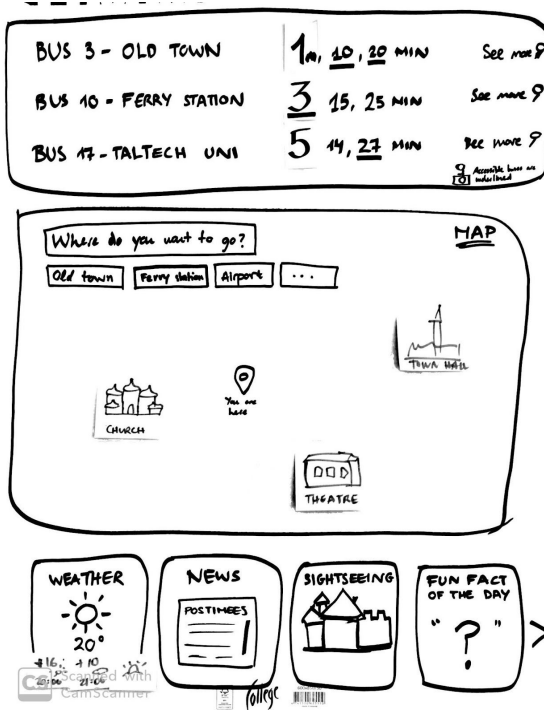 BUS 3 - OLD TOWN 1m, 10, 20 MIN See more
BUS 10 - FERRY STATION 3 15, 25 MIN See more
BUS 17 - TALTECH UNI 5 14, 27 MIN See more
Accessible buses are
underlined
Where do you want to go?
MAP
Old town Ferry station Airport ...
TOWN HALL
You are
here
CHURCH
THEATRE
WEATHER
20°
+16 +10
20:00 21:00
NEWS
POSTIMEES
SIGHTSEEING
FUN FACT
OF THE DAY
" ? "
>
CS Scanned with
CamScanner
College